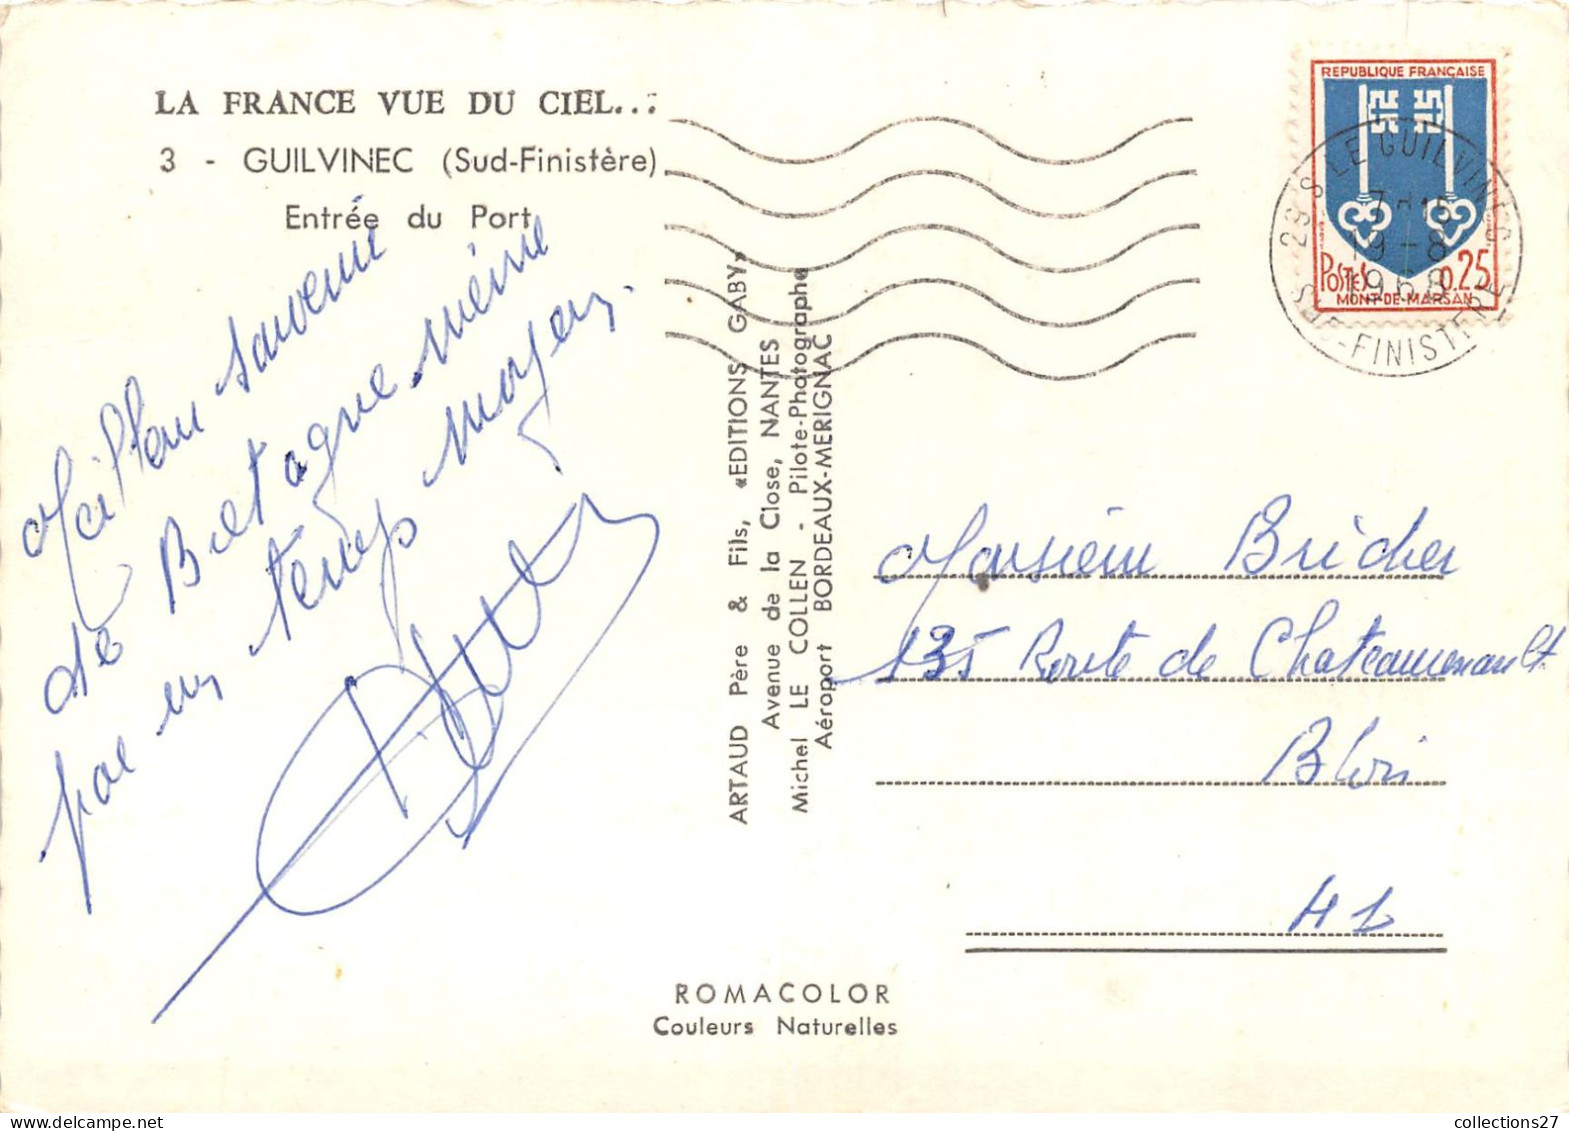 LA FRANCE VUE DU CIEL...
3 - GUILVINEC (Sud-Finistère)
Entrée du Port
Meilleur souvenir
de Bretagne même
par un temps moyen.
ARTAUD Père & Fils, «EDITIONS GABY»
Avenue de la Close, NANTES
Michel LE COLLEN - Pilote-Photographe
Aéroport BORDEAUX-MERIGNAC
REPUBLIQUE FRANÇAISE
POSTES 0.25
MONT-DE-MARSAN
29 S LE GUILVINEC
19-8
1968
FINISTERE
Monsieur Bricher
135 Route de Chateaurenault
Blois
41
ROMACOLOR
Couleurs Naturelles
collections27